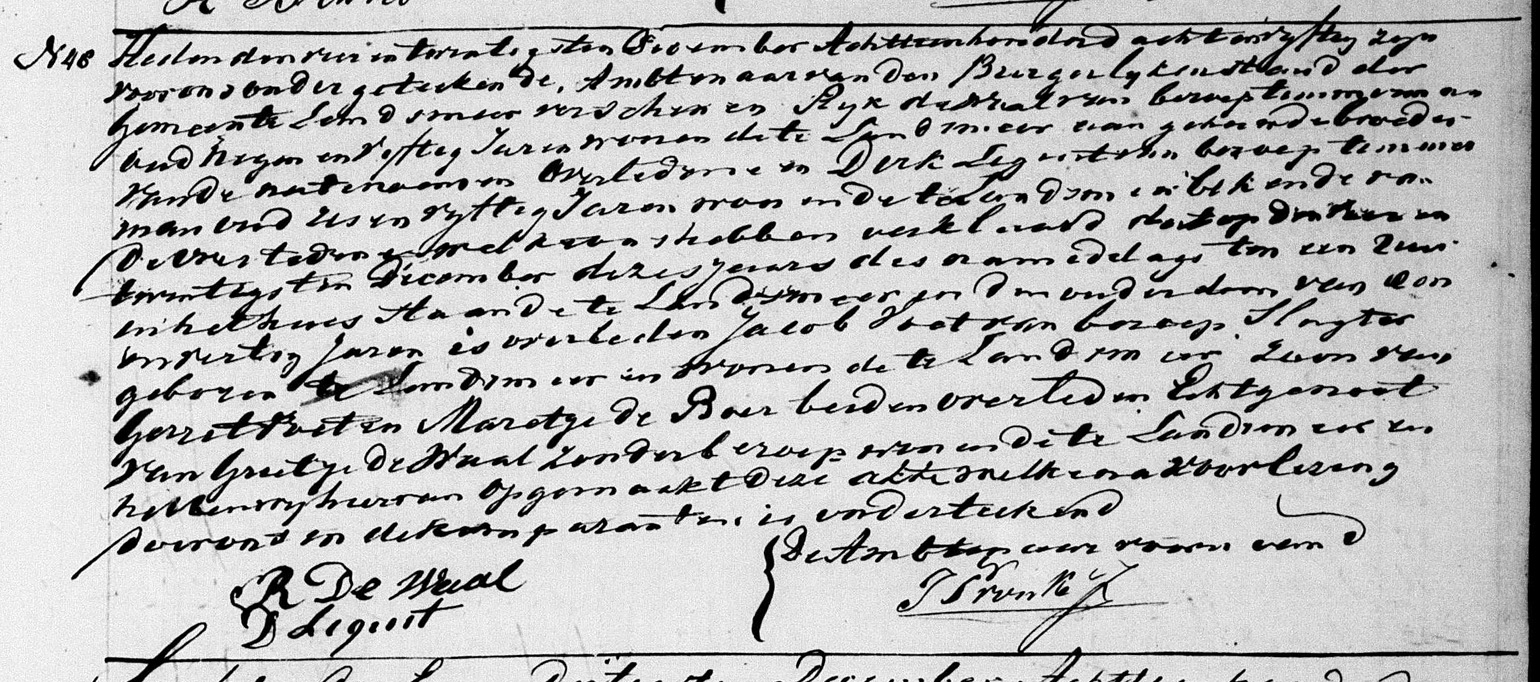 N 48 Heden den vier en twentigsten December Achttienhonderd acht en vyftig zyn
voor ons ondergeteekende, Ambtenaar van den Burgerlyken stand der
Gemeente Landsmeer verschenen Ryk de Waal van beroep timmerman
oud negen en vyftig Jaren wonende te Landsmeer aan gehuwde broeder
van de overledene en Dirk Lequit van beroep timmer
man oud zes en vyftig Jaren woonende te Landsmeer bekende van
De overledene welke ons hebben verklaard dat op den
twintigsten December dezes jaars des namiddags ten een uur
in het huis staande te Landsmeer in den ouderdom van een
en veertig Jaren is overleden Jacob Voet van beroep Slagter
geboren te Landsmeer en wonende te Landsmeer Zoon van
Gerrit Voet en Maretje de Boer beiden overleden Echtgenoot
van Grietje de Waal zonder beroep wonende te Landsmeer en
hebben wy hiervan opgemaakt deze akte welke na voorlezing
door ons en de komparanten is onderteekend
De Ambtenaar voornoemd
R De Waal
D Lequit